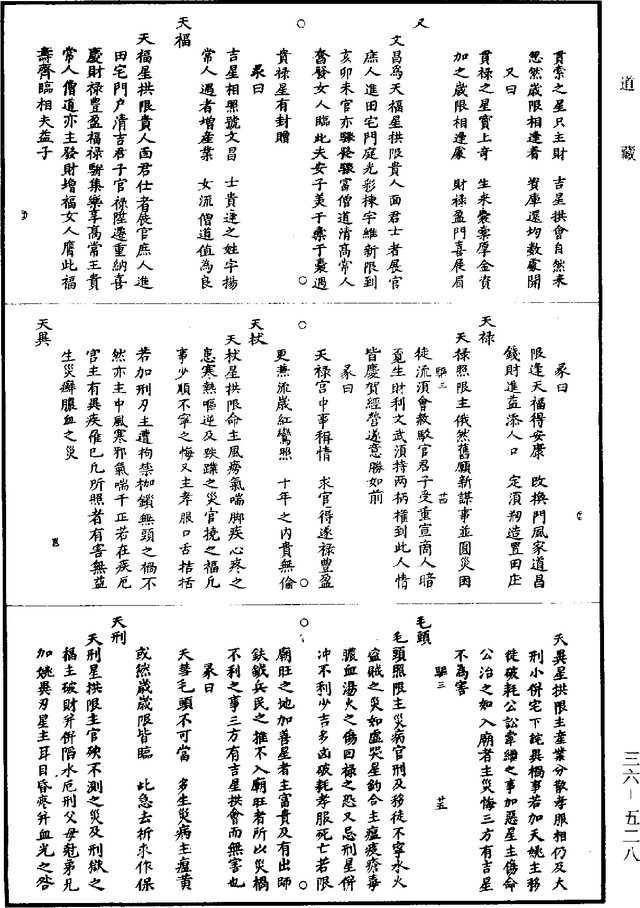 道藏
貫索之星只主財 吉星拱會自然來
忽然歲限相逢着 資庫還均數處開
又曰
貫祿之星實上奇 生來橐橐厚金資
加之歲限相逢處 財祿盈門喜展眉
又
文昌為天福星拱限貴人面君士者展官
庶人進田宅門庭光彩棟宇維新限到
亥卯未宫亦驟發驟富僧道清高常人
奮發女人臨此夫安子美干橐于囊遇
貴祿星有封贈
彖曰
吉星相照號文昌 士貴逢之姓字揚
常人遇者增産業 女流僧道值為良
天福
天福星拱限貴人面君仕者展官庶人進
田宅門户清吉君子官祿陞遷重納喜
慶財祿豐盈福祿駢集樂享高常王貴
常人僧道亦主發財增福女人膺此福
壽齊臨相夫益子
彖曰
限逢天福得安康 改換門風家道昌
錢財進益添人口 定須剏造置田庄
天祿
天祿照限主俄然舊願新謀事並圓災困
徒流須會赦駁官君子受重宣商人暗
覓生財利文武須持兩柄權到此人情
皆慶賀經營遂意勝如前
彖曰
天祿宫中事稱情 求官得遂祿豐盈
更兼流歲紅鸞照 十年之内貴無倫
天杖
天杖星拱限命主風癆氣喘脚疾心疼之
患寒熱嘔逆及跌蹼之災官撓之福凡
事少順不寧之悔又主孝服口舌括括
若加刑刃主遭拘禁枷鎖無頭之禍不
然亦主中風寒邪氣喘干正若在疾厄
宫主有異疾催巳凡所照者有害無益
生災癬膿血之災
天異
天異星拱限主産業分散孝服相仍及大
刑小併宅下詫異禍事若加天姚主移
徒破耗公訟牽纏之事加惡星主傷命
公治之如入廟者主災悔三方有吉星
不為害
毛頭
毛頭照限主災病官刑及移徒不寧水火
盜賊之災如虚哭星鈎合主瘟疫瘡毒
膿血湯火之傷回祿之恐又忌刑星併
冲不利少吉多凶破耗孝服死亡若限
廟旺之地加善星者主富貴及有出師
鈇鉞兵民之推不入廟旺者所以災禍
不利之事三方有吉星拱會而無害也
彖曰
天彗毛頭不可當 多生災病主瘟黄
或然歲歲限皆臨 此急去祈求作保
天刑
天刑星拱限主官殃不測之災及刑獄之
福主破財并併陷水厄刑父母尅弟兄
加姚異刃星主耳目昏疼并血光之咎
三六—五二八